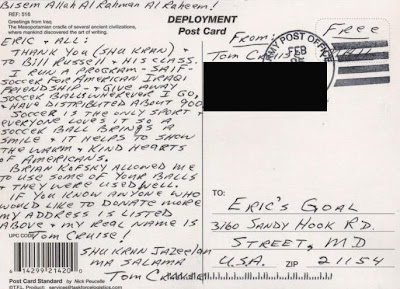 Bisem Allah Al Rahman Al Raheem!
REF: 516
Greetings from Iraq
The Mesopotamian cradle of several ancient civilizations,
where mankind discovered the art of writing.
DEPLOYMENT
Post Card
From:
Free
Tom
ARMY POST OFFICE
FEB
ERIC & ALL:
THANK YOU (SHUKRAN)
TO BILL RUSSELL & HIS CLASS.
I RUN A PROGRAM - SAIF-
SOCCER FOR AMERICAN IRAQI
FRIENDSHIP - & GIVE AWAY
SOCCER BALLS WHEREVER I GO.
I HAVE DISTRIBUTED ABOUT 900
SOCCER IS THE ONLY SPORT &
EVERYONE LOVES IT SO A
SOCCER BALL BRINGS A
SMILE & IT HELPS TO SHOW
THE WARM & KIND HEARTS
OF AMERICANS.
BRIAN KOFSKY ALLOWED ME
TO USE SOME OF YOUR BALLS
& THEY WERE USED WELL.
IF YOU KNOW ANYONE WHO
WOULD LIKE TO DONATE MORE
MY ADDRESS IS LISTED
ABOVE & MY REAL NAME IS
TOM CRUISE!
SHUKRAN JAZEELAN
MA SALAMA
TOM
TO:
ERIC'S GOAL
3160 SANDY HOOK RD.
STREET, MD
U.S.A. ZIP 21154
UPC CODE
6 14299 21420 0
Post Card Standard by Nick Peucelle
©T.F.L. Products